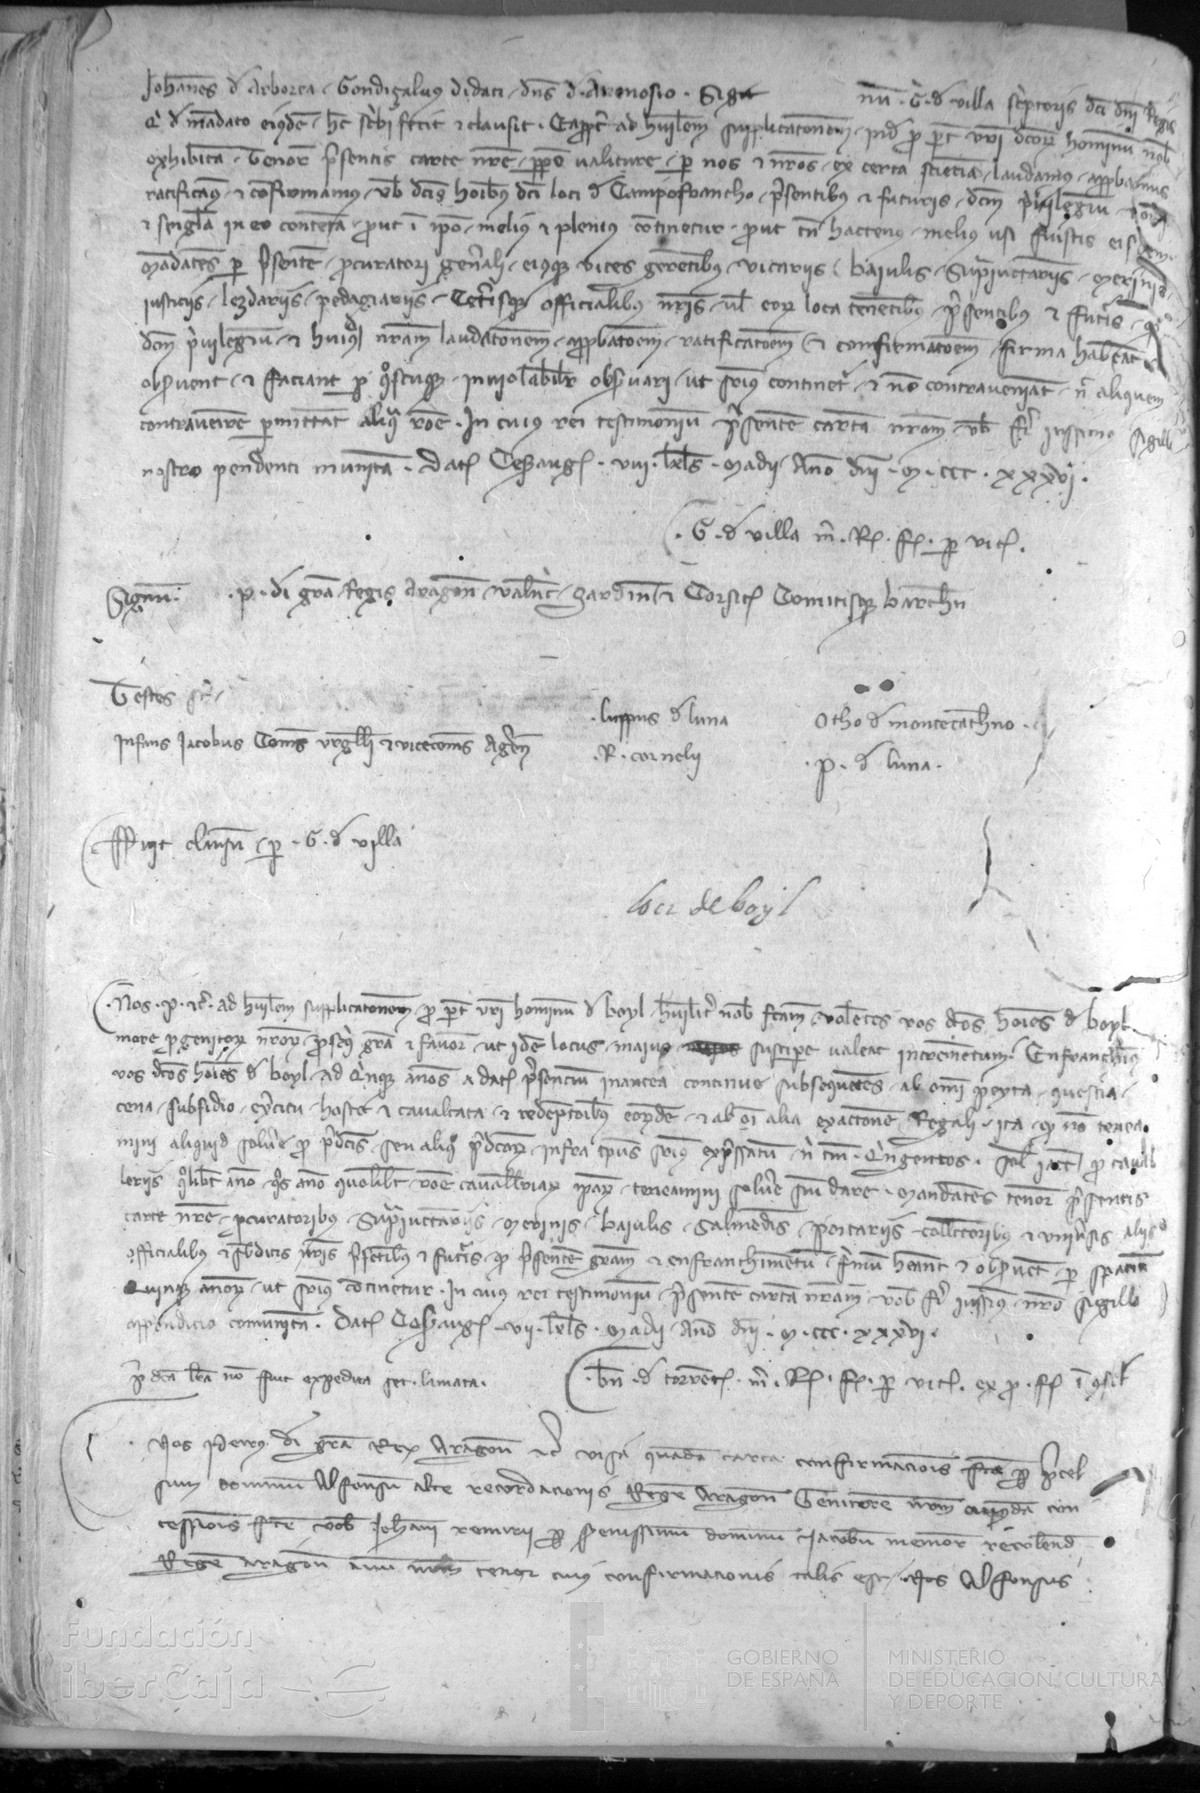 Johanes d Arborea Gondiçalvus didaci dns d Arenosio. Sig nu. G. d villa scriptoris dci dni Regis
Q d mandato eiusdem hec scribi fecit et clausit. Eapropter ad humilem supplicationem pro parte vri dcorum hominum nob
exhibita Tenore presentis carte nre perpetuo valiture per nos et nros ex certa sciencia laudamus approbamus
ratificamus et confirmamus vob dcis hoibus dci loci d Campofrancho presentibus et futuris dcm privilegium
et singla in eo contenta prout in ipo melius et plenius continetur prout tn hactenus melius usi fuistis eisdem
Mandates per presente procuratori generali eiusque vices gerentibus vicariis Baiulis Suprajunctariis Merinis
iusticiis lezdariis pedagiariis Ceterisque officialibus nris vel eorum loca tenentibus presentibus et futuris q
dcm privilegium et huiusmodi nram laudationem approbationem ratificationem et confirmationem firma habeat
observent et faciant per quoscumque inviolabiliter observari ut superius continetur et non contraveniat nec aliquem
contravenire permittat aliqua roe. In cuius rei testimonium presente carta nram vob fieri iussimus sigillo
nostro pendenti munita. Dat Cesaraug. viii. kls. Madii Ano dni. M. ccc. xxxvi.
G. d villa m. R. f. p vic.
Signum. P. di gra Regis Aragon Valenc Sardin et Corsic Comitisque Barchn
Testes st
Infans Jacobus Comes urgelli et vicecoms Ageren
luppus d luna
R. cornelii
Otho d montecatheno
P. d luna
Fuit clausu p. G. d villa
loci de boyl
Nos. P. etc. ad humilem supplicationem pro parte vri hominum d boyl humiliter nob factam volentes vos dcos hoies d boyl
more progenitorum nrorum prosequi gra et favore ut idem locus maius suscipere valeat incrementum Enfranchimus
vos dcos hoies d boyl ad quinque anos a dat presencium inantea continue subsequentes ab omi peyta questia
cena subsidio exercitu hoste et cavalcata et redemptoibus eorundem et ab oi alia exactione Regali ita q non tenea
mini aliquid solvere pro predictis seu aliquo predictorum infra tempus superius expressatum n tn Quingentos. sol. iacc pro cavall
leriis quolibet ano quos ano quolibet roe cavalleriarum iparum teneamini solvere sive dare. Mandates tenore presentis
carte nre procuratoribus Suprajunctariis Merinis Baiulis Salmedinis portariis collectoribus et universis aliis
officialibus et subditis nris presentibus et futuris q presente gram et enfranchimentum firmu heant et observent per spacium
Quinque anorum ut superius continetur. In cuius rei testimonium presente carta nram vob fieri iussimus nro sigillo
appendicio comunita. Dat Cesaraug. vii. kls. Madii Ano dni. M. ccc. xxxvi.
pr dca lra no fuit expedita set limata.
bn. d torrent. m. R. f. p vic. ex pro. ff i consil
Nos Petrus di gra Rex Aragon etc visa quada carta confirmacionis fta per precel
sum dominum Alfonsum alte recordacionis Rege Aragon Genitore nrm cuiusdam con
cessionis fte vob Johani remirii per serenissimum dominum Jacobum memor recolend
Rege Aragon avum nrm tenor cuius confirmacionis talis est. Nos Alfonsus
Fundación
iberCaja
GOBIERNO
DE ESPAÑA
MINISTERIO
DE EDUCACIÓN, CULTURA
Y DEPORTE